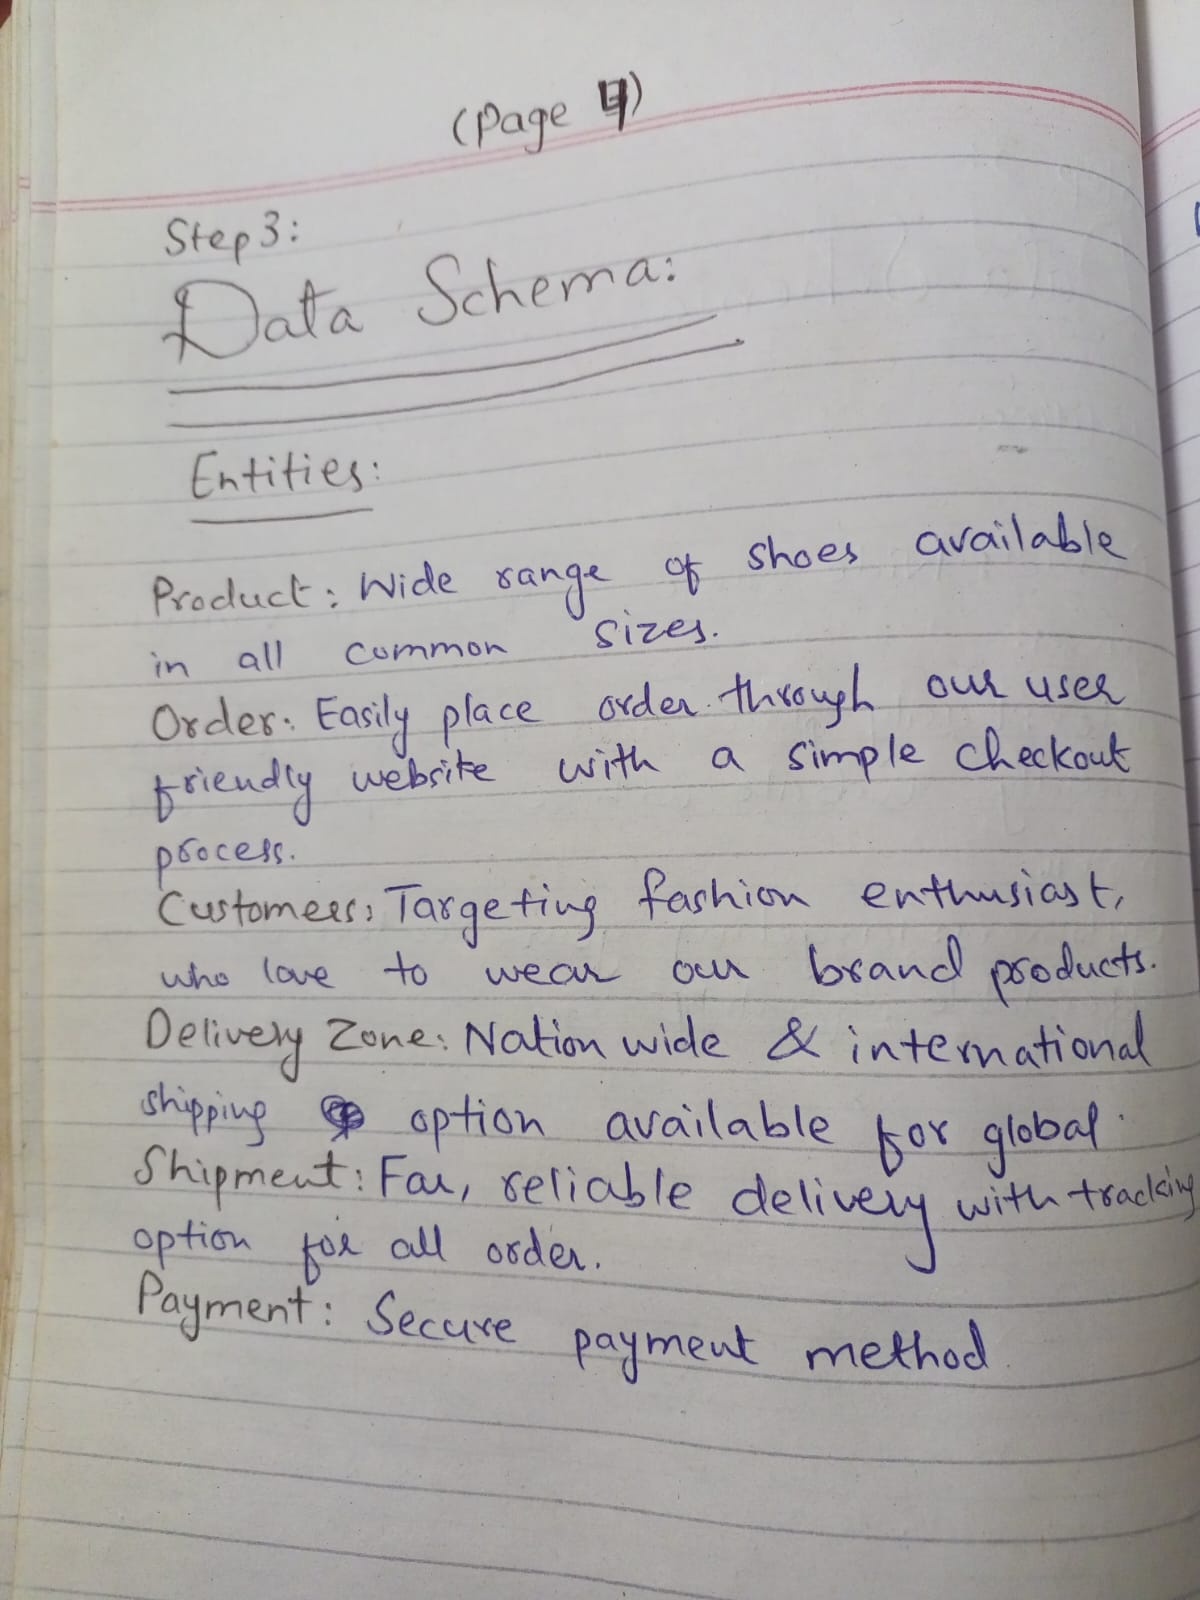 (Page 4)
Step 3:
Data Schema:
Entities:
Product: Wide range of shoes available
in all common sizes.
Order: Easily place order through our user
friendly website with a simple checkout
process.
Customers: Targeting fashion enthusiast,
who love to wear our brand products.
Delivery Zone: Nation wide & international
shipping option available for global.
Shipment: Far, reliable delivery with tracking
option for all order.
Payment: Secure payment method